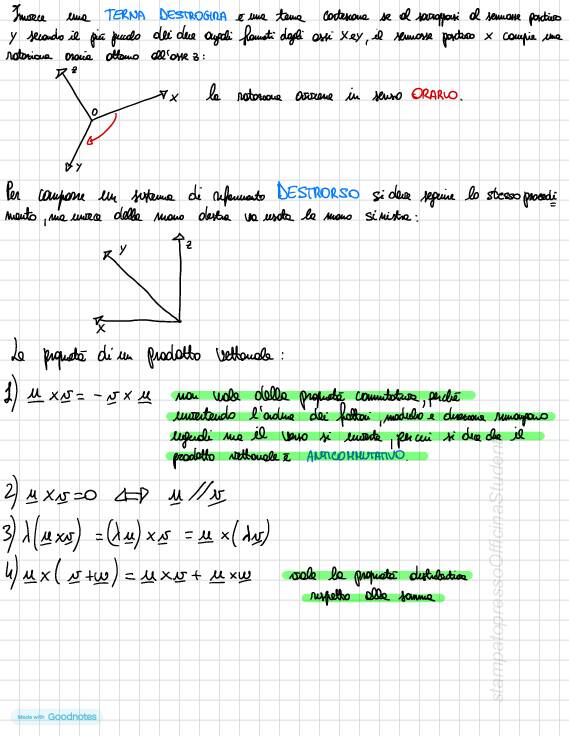 Invece una TERNA DESTROGIRA è una terna cartesiana se al sovrapporsi al semiasse positivo
y secondo il più piccolo dei due angoli formati dagli assi X e y, il semiasse positivo x compie una
rotazione oraria attorno all'asse z:
z
O
X
la rotazione avviene in senso ORARIO.
y
Per comporre un sistema di riferimento DESTRORSO si deve seguire lo stesso procedi
mento, ma invece della mano destra va usata la mano sinistra:
y
z
X
Le proprietà di un prodotto vettoriale:
1) u x v = - v x u non vale della proprietà commutativa, perché
invertendo l'ordine dei fattori, modulo e direzione rimangono
uguali ma il verso si inverte, per cui si dice che il
prodotto vettoriale è ANTICOMMUTATIVO.
2) u x v = 0 ⟺ u // v
3) λ(u x v) = (λu) x v = u x (λv)
4) u x (v+w) = u x v + u x w vale la proprietà distributiva
rispetto alla somma
stampatopressoOfficinaStudenti
Made with Goodnotes